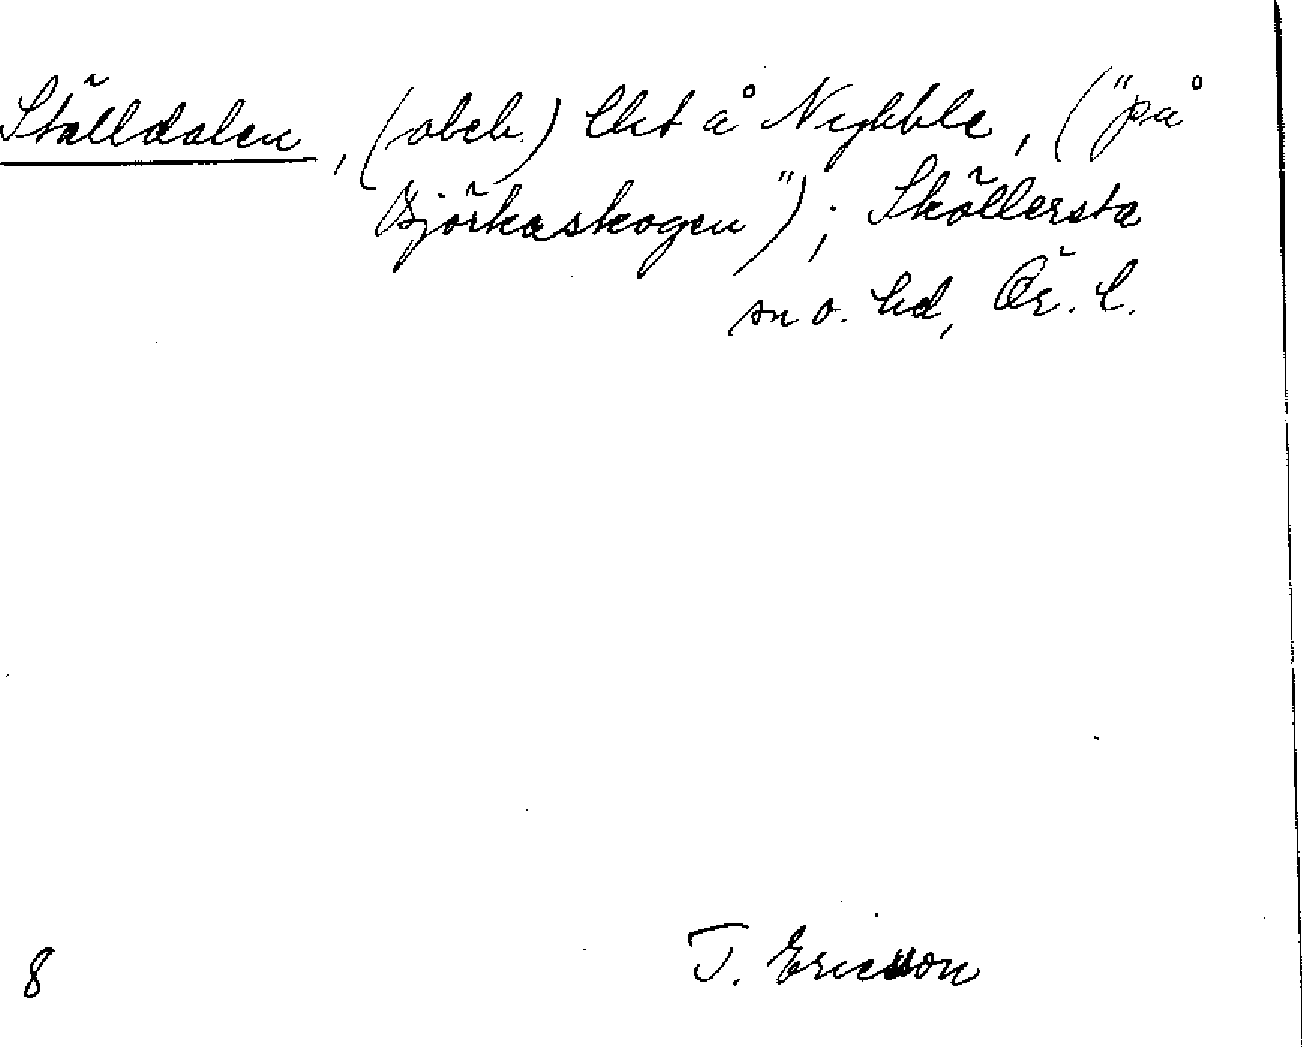 Ställdalen, (obeb.) lht å Nykble, ("på
Björkaskogen"); Sköllersta
sn o. hd, Ör. l.
8 T. Ericsson